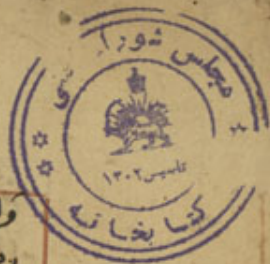 مجلس شورا
ی
تاسیس ۱۳۰۲
کتابخانه